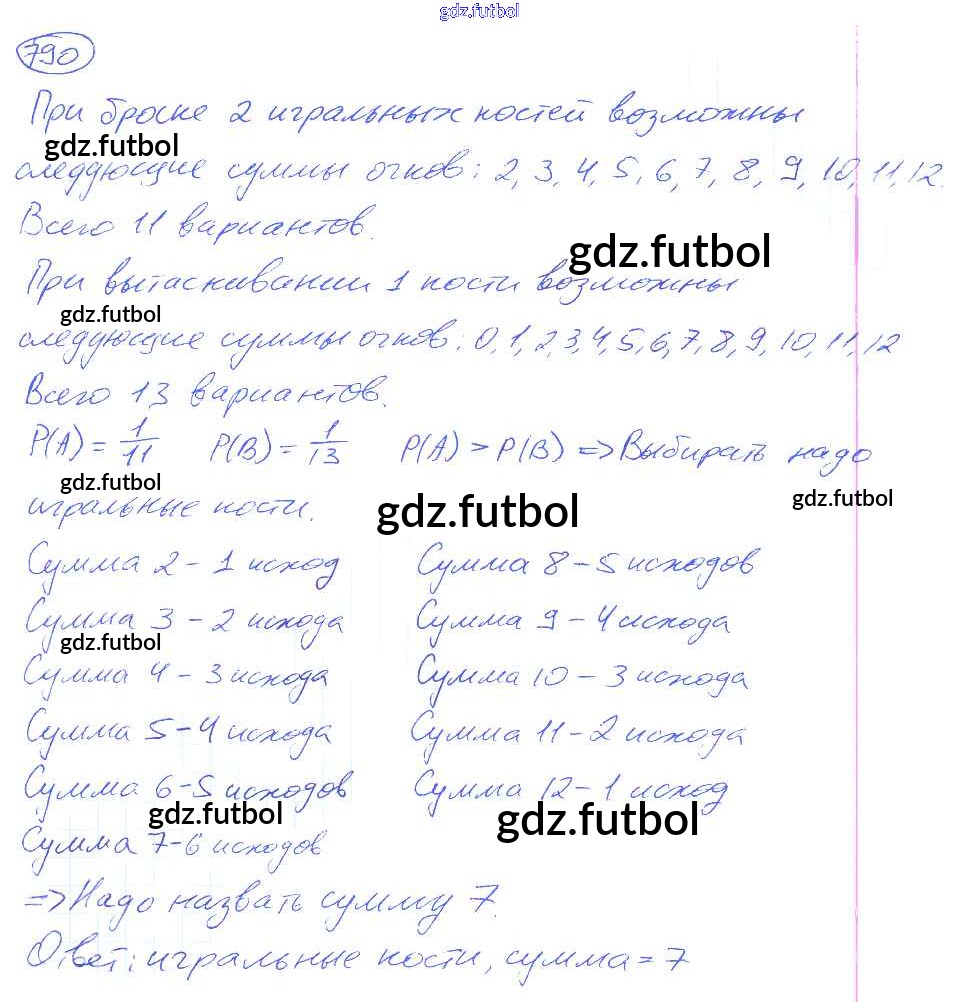 gdz.futbol
790
При броске 2 игральных костей возможны
gdz.futbol
следующие суммы очков: 2, 3, 4, 5, 6, 7, 8, 9, 10, 11, 12.
Всего 11 вариантов.
gdz.futbol
При вытаскивании 1 кости возможны
gdz.futbol
следующие суммы очков: 0, 1, 2, 3, 4, 5, 6, 7, 8, 9, 10, 11, 12
Всего 13 вариантов.
P(A) = 1/11 P(B) = 1/13 P(A) > P(B) => Выбирать надо
gdz.futbol
gdz.futbol
игральные кости.
gdz.futbol
Сумма 2 - 1 исход Сумма 8 - 5 исходов
Сумма 3 - 2 исхода Сумма 9 - 4 исхода
gdz.futbol
Сумма 4 - 3 исхода Сумма 10 - 3 исхода
Сумма 5 - 4 исхода Сумма 11 - 2 исхода
Сумма 6 - 5 исходов Сумма 12 - 1 исход
gdz.futbol
gdz.futbol
Сумма 7 - 6 исходов
=> Надо назвать сумму 7.
Ответ: игральные кости, сумма = 7